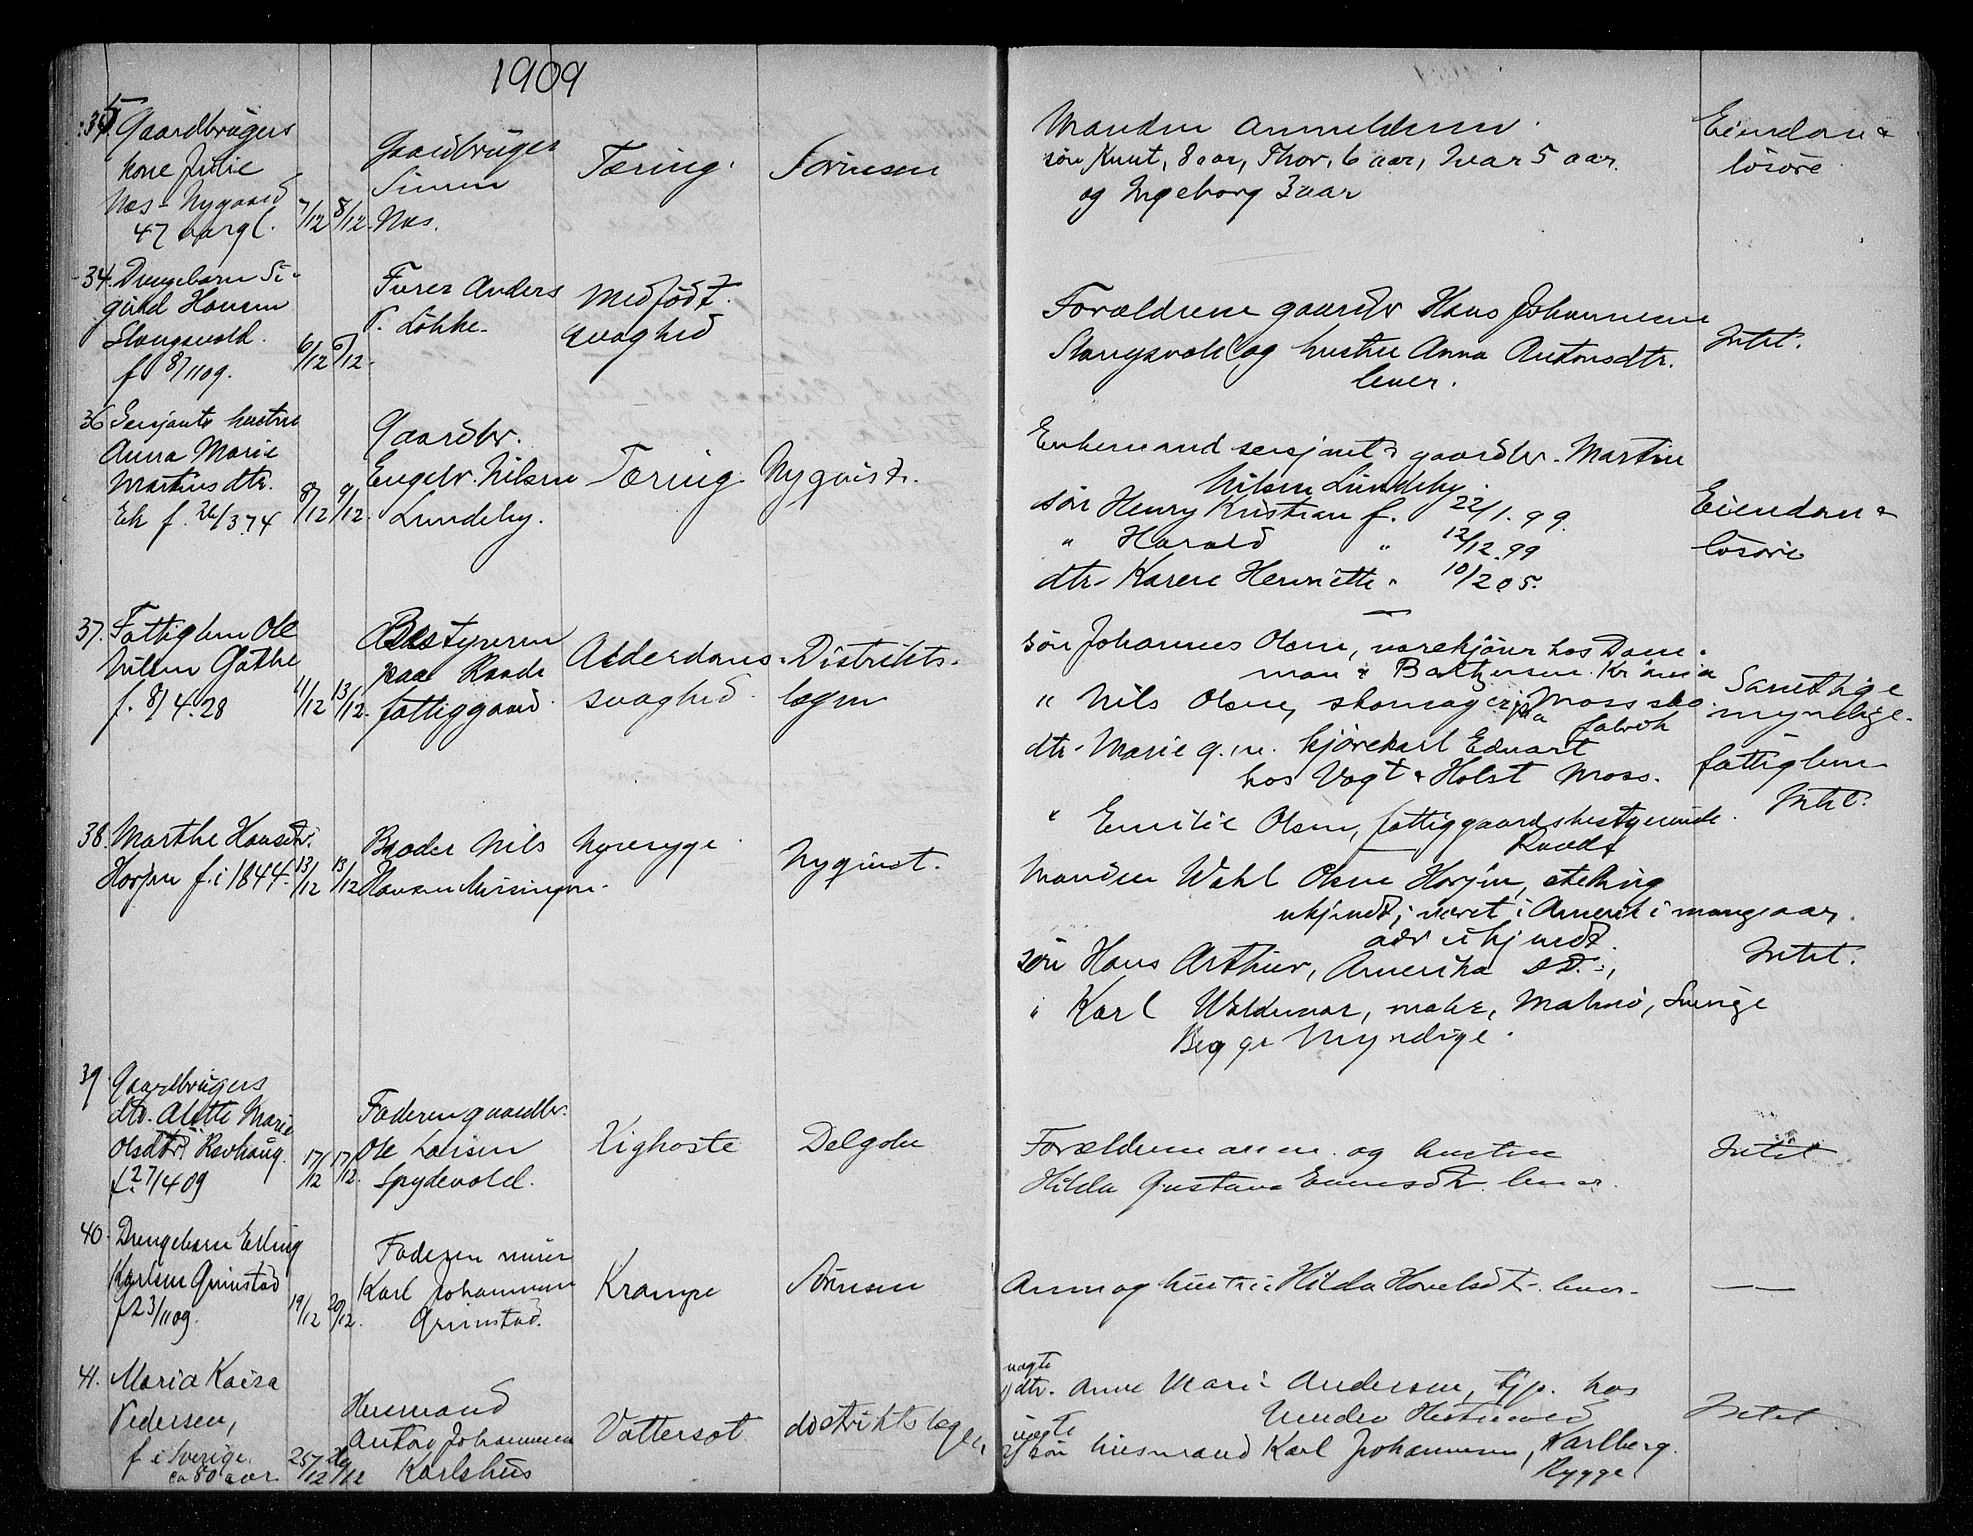 1909
35. Gaardbrugers
kone Julie
Næs - Nygaard
47 aar gl.
7/12 8/12
Gaardbruger
Simen
Næs.
Tæring.
Sørensen
Manden Anmelderen.
søn Knut, 8 aar, Thor, 6 aar, Ivar 5 aar
og Ingeborg 3 aar
Eiendom &
løsøre
34. Drengebarn Si-
gurd Hansen
Slangsvold.
f. 8/11 09.
6/12 6/12.
Furer Anders
P. Løkke.
Medfødt
svaghed
Forældrene gaardbr Hans Johannesen
Slangsvold og hustru Anna Antonsdtr.
lever.
Intet.
36 Sersjants hustru
Anna Marie
Martinsdtr.
Ek f. 26/3 74
8/12 9/12.
Gaardbr.
Engebr. Nilsen
Lundeby.
Tæring
Nyquist.
Enkemand sersjant & gaardbr. Martin
Nilsen Lundeby.
søn Henry Kristian f. 22/1. 99.
" Harald " 12/12. 99
dtr. Karen Henriette " 10/2 05.
Eiendom &
løsøre
37. Fattiglem Ole
Nilsen Gåthe
f. 8/4. 28
11/12 13/12.
Bestyreren
paa Raade
fattiggaard.
Alderdoms-
svaghed.
Distrikts-
lægen
søn Johannes Olsen, visekjører hos Dam-
man & Bathensen. Kr.ania
" Nils Olsen, skomager paa Moss sko
fabrik
dtr. Marie g. m. kjørekarl Edvart
hos Vogt & Holst Moss.
" Emilie Olsen, fattiggaardsbestyrerinde.
Raade
Samtlige
myndige.
fattiglem
Intet.
38. Marthe Hansdtr.
Horjen f. i 1844.
13/12 13/12
Broder Nils
Hansen Missingen.
Nyresyge.
Nyquist.
Manden Wahl Olsen Horjen, stilling
ukjendt; været i Amerik i mange aar.
adr ukjendt.
søn Hans Arthur, Amerika
" Karl Waldemar, maler, Malmø, Sverige
Begge Myndige.
Intet.
39 Gaardbrugers
dtr. Alette Marie
Olsdtr. Ravhaug.
f. 27/4 09
17/12 17/12.
Faderen gaardbr.
Ole Larsen
Spydevold.
Kighoste
Delgobe
Forældrene anm. og hustru
Hilda Gustava Evensdtr. lever.
Intet
40. Drengebarn Erling
Karlsen Grimstad
f 23/11 09.
19/12 20/12.
Faderen murer
Karl Johannesen
Grimstad.
Krampe
Sørensen
Anm og hustru Hilda Hovelsdtr. lever. —
41. Maria Kaisa
Pedersen,
f i Sverige.
ca 80 aar
25/12 26/12
Husmand
Anton Johannesen
Karlshus
Vattersot.
distriktslægen
uægte
1) dtr. Anne Marie Andersen, tjp. hos
uægte
2) søn husmand Karl Johannesen, Karlberg.
Rygge
Intet